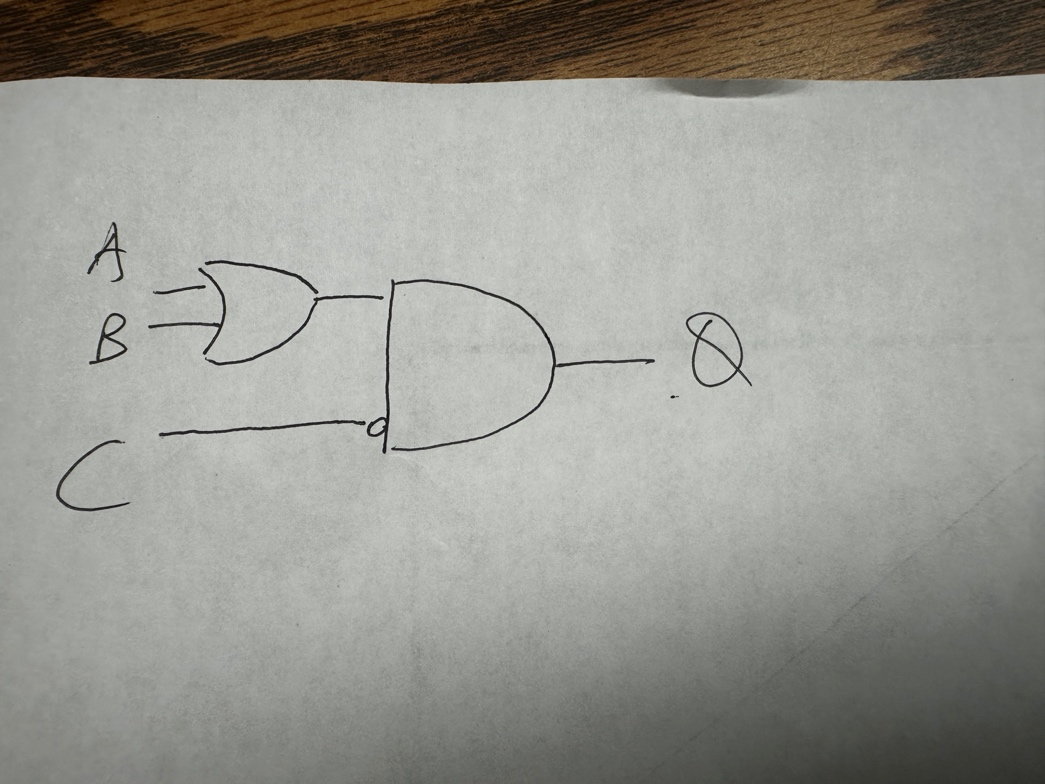 A
B
C
Q